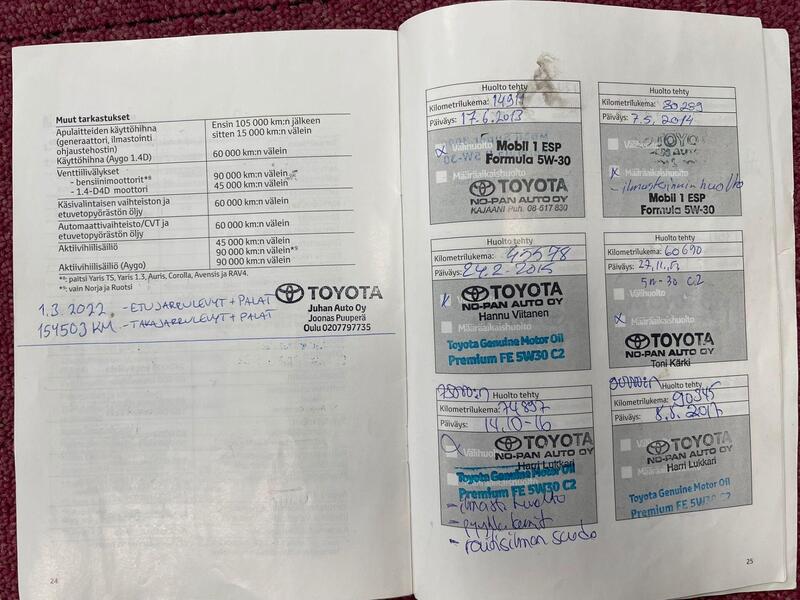 Muut tarkastukset
Apulaitteiden käyttöhihna
(generaattori, ilmastointi
ohjaustehostin)
Käyttöhihna (Aygo 1.4D)
Ensin 105 000 km:n jälkeen
sitten 15 000 km:n välein
60 000 km:n välein
Venttiilivälykset
- bensiinimoottorit*⁸
- 1.4-D4D moottori
90 000 km:n välein
45 000 km:n välein
Käsivalintaisen vaihteiston ja
etuvetopyörästön öljy
60 000 km:n välein
Automaattivaihteisto/CVT ja
etuvetopyörästön öljy
60 000 km:n välein
Aktiivihiilisäiliö
Aktiivihiilisäiliö (Aygo)
45 000 km:n välein
90 000 km:n välein*⁹
90 000 km:n välein
*⁸: paitsi Yaris TS, Yaris 1.3, Auris, Corolla, Avensis ja RAV4.
*⁹: vain Norja ja Ruotsi
1.3.2022 - ETUJARRULEVYT + PALAT
154503 KM - TAKAJARRULEVYT + PALAT
TOYOTA
Juhan Auto Oy
Joonas Puuperä
Oulu 0207797735
24
Huolto tehty
Kilometrilukema:
Päiväys: 17.6.2013
x Välihuolto
Määräaikaishuolto
Mobil 1 ESP
Formula 5W-30
TOYOTA
NO-PAN AUTO OY
KAJAANI Puh. 08-617 830
Huolto tehty
Kilometrilukema: 30289
Päiväys: 7.5.2014
Välihuolto
x
- ilmastoinnin huolto
Mobil 1 ESP
Formula 5W-30
Huolto tehty
Kilometrilukema: 45578
Päiväys: 24.2-2015
x
Määräaikaishuolto
TOYOTA
NO-PAN AUTO OY
Hannu Viitanen
Toyota Genuine Motor Oil
Premium FE 5W30 C2
Huolto tehty
Kilometrilukema: 60690
Päiväys: 27.11.
5w-30 C2
Välihuolto
x Määräaikaishuolto
TOYOTA
NO-PAN AUTO OY
Toni Kärki
Huolto tehty
Kilometrilukema: 74897
Päiväys: 14.10-16
Välihuolto
TOYOTA
NO-PAN AUTO OY
Harri Lukkari
Toyota Genuine Motor Oil
Premium FE 5W30 C2
- huolto
Huolto tehty
Kilometrilukema: 90345
Päiväys: 8.8.2017
Välihuolto
Määräaikaishuolto
TOYOTA
NO-PAN AUTO OY
Harri Lukkari
Toyota Genuine Motor Oil
Premium FE 5W30 C2
25